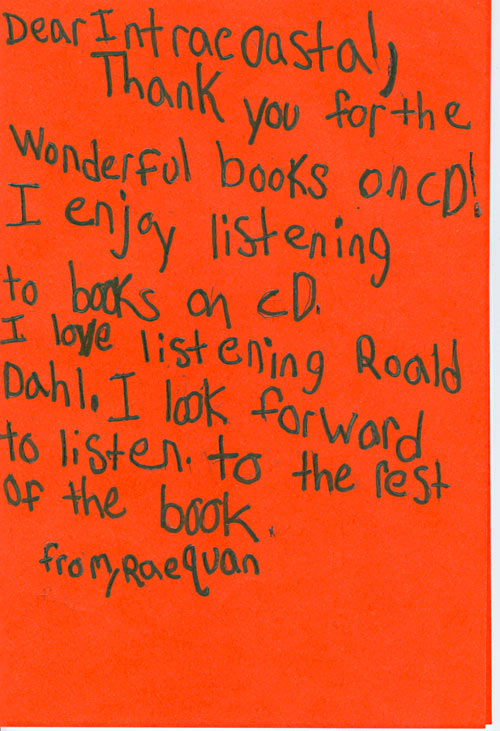 Dear Intracoastal,
Thank you for the
Wonderful books on CD!
I enjoy listening
to books on CD.
I love listening Roald
Dahl. I look forward
to listen. to the rest
of the book.
from, Raequan